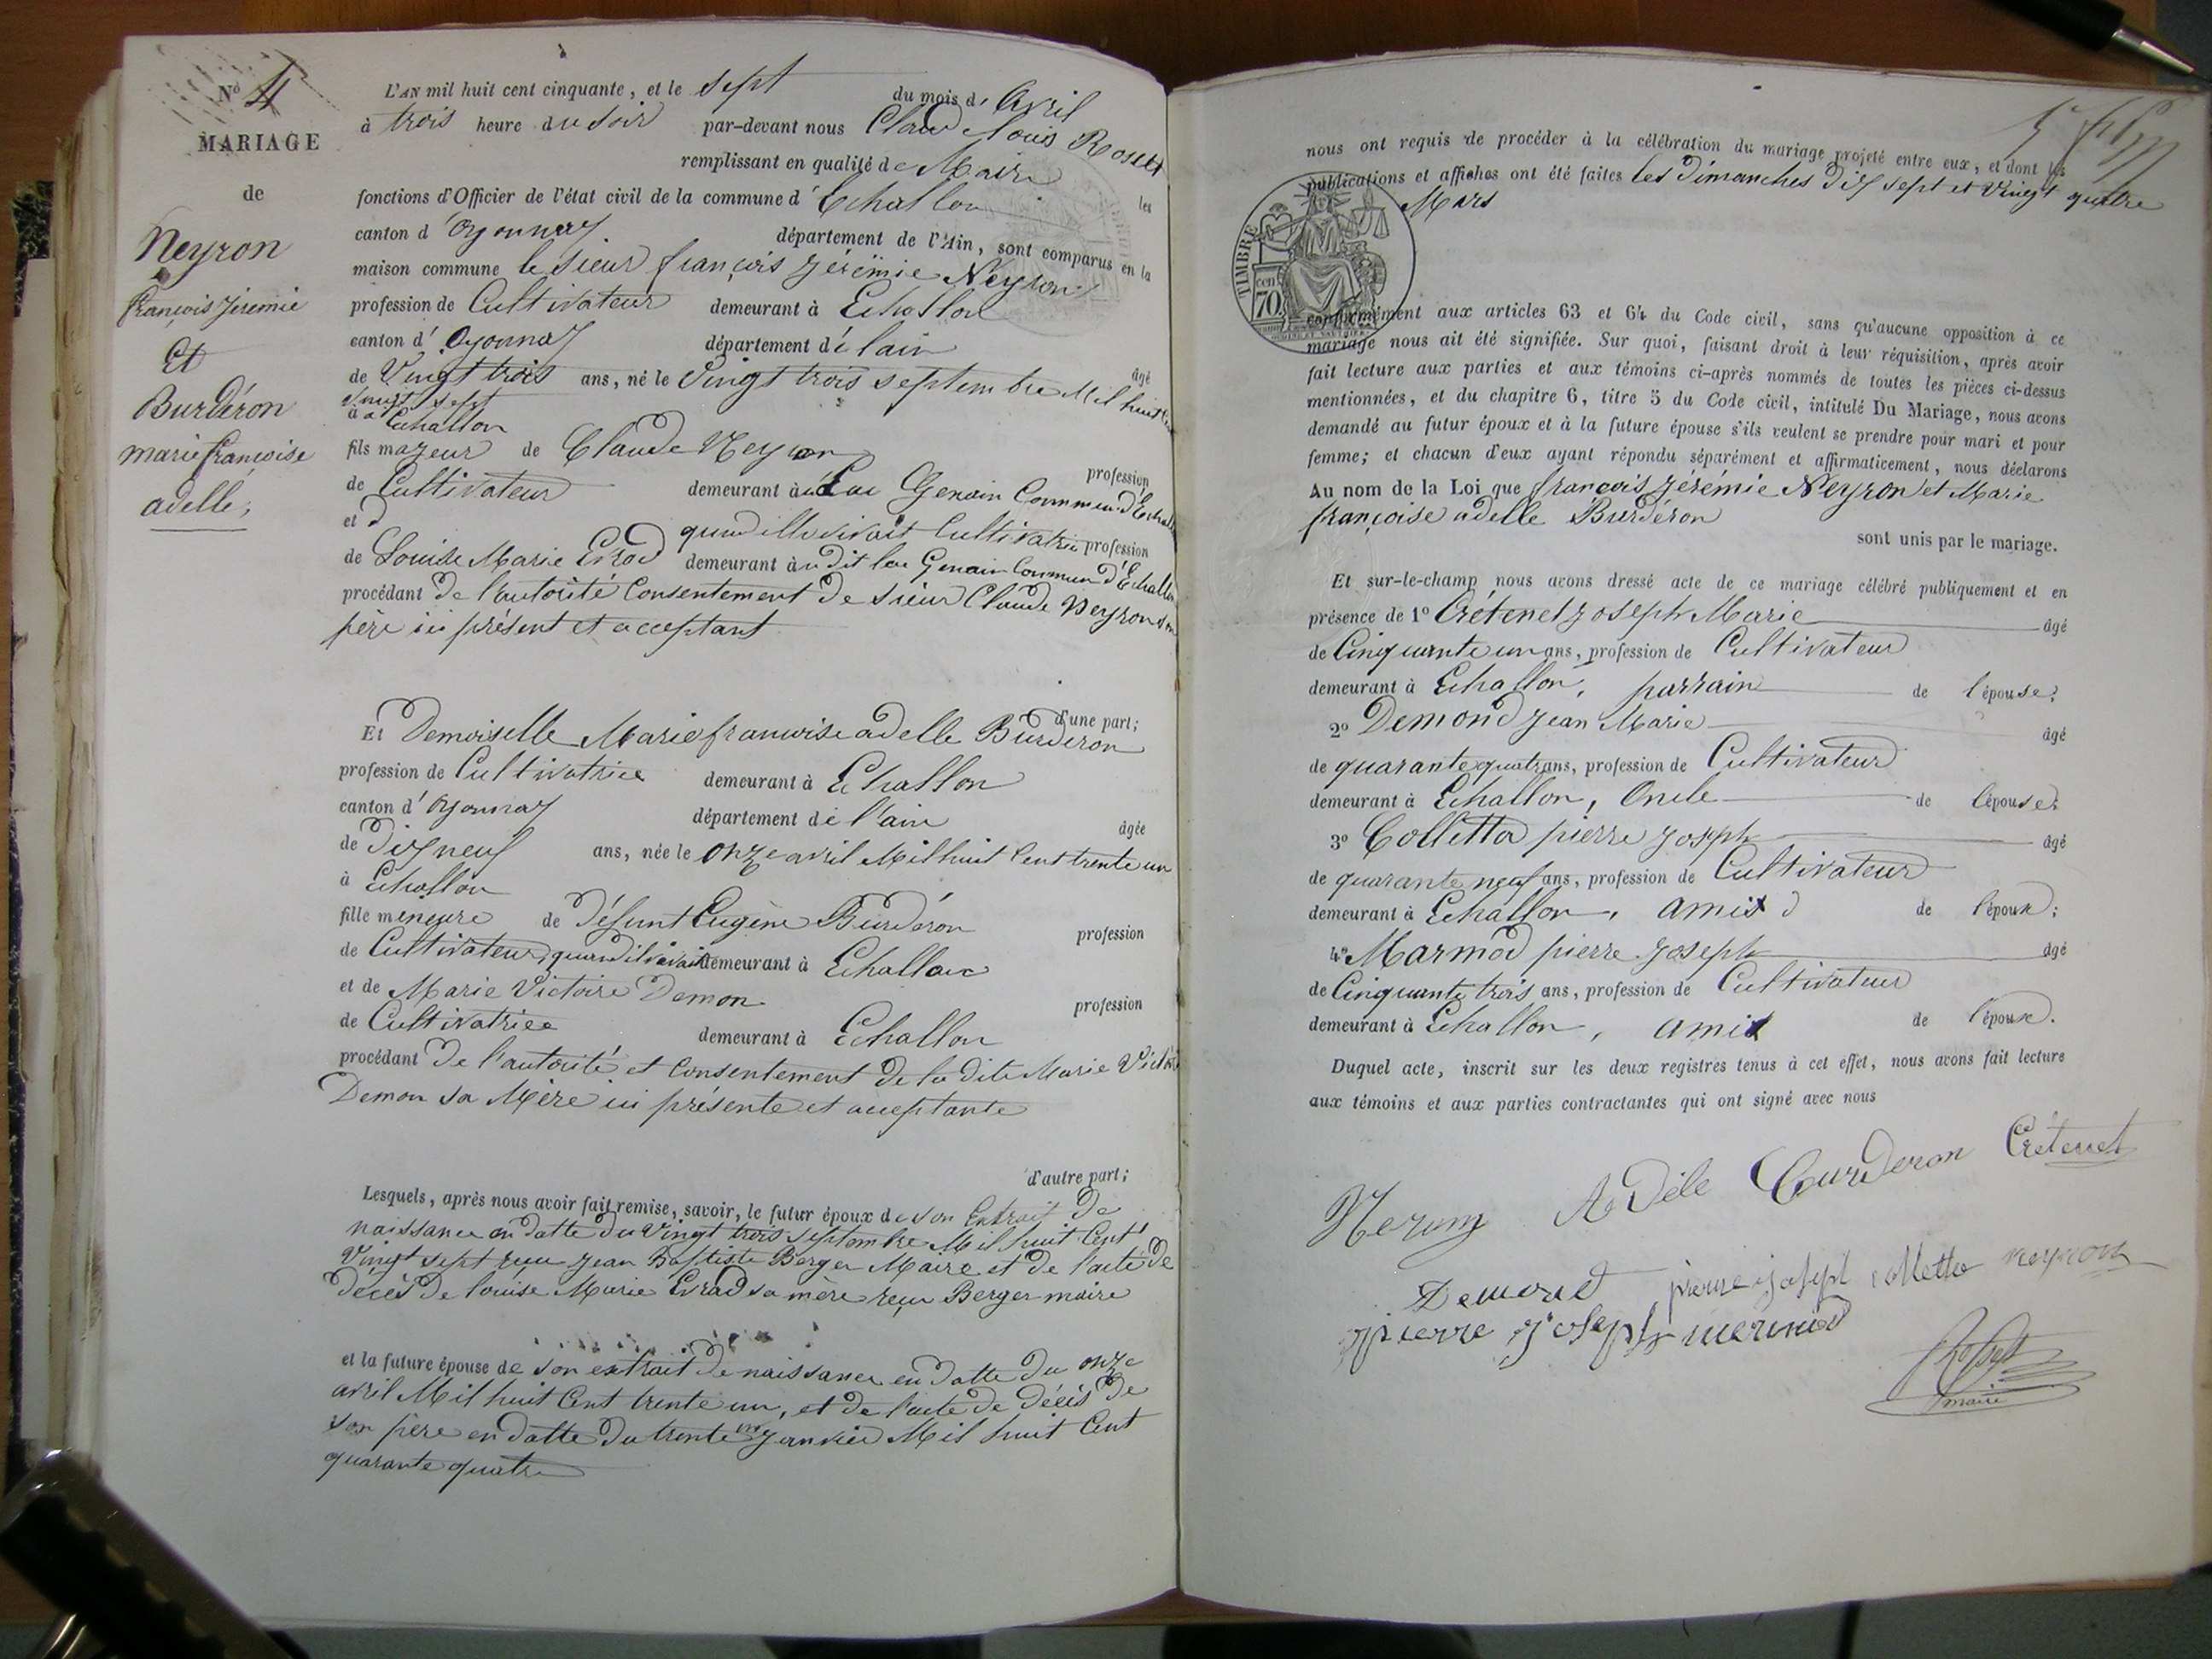 No 4
MARIAGE
de
Neyron
françois jérémie
Et
Burdéron
marie françoise
adelle;
L'AN mil huit cent cinquante, et le sept du mois d'Avril
à trois heure du soir par-devant nous Claud Louis Rosset
remplissant en qualité de Maire les
fonctions d'Officier de l'état civil de la commune d'Echallon
canton d'Oyonnax département de l'Ain, sont comparus en la
maison commune le sieur françois jérémie Neyron
profession de Cultivateur demeurant à Echallon
canton d'Oyonnax département de l'ain âgé
de Vingt trois ans, né le Vingt trois septembre Mil huit
vingt sept
à Echallon
fils majeur de Claude Neyron profession
de Cultivateur demeurant au Lac Genin Commune d'Echallon
et d quand elle vivait Cultivatrice profession
de Louise Marie Evrad demeurant au dit lac Genin Commune d'Echallon
procédant de l'autorité Consentement de sieur Claude Neyron son
père ici présent et acceptant
d'une part;
Et Demoiselle Marie françoise adelle Burdéron
profession de Cultivatrice demeurant à Echallon
canton d'Oyonnax département de l'ain âgée
de Dix neuf ans, née le onze avril Mil huit Cent trente un
à Echallon
fille meneure de Défunt Eugène Burdéron profession
de Cultivateur quand il vivait demeurant à Echallon
et de Marie Victoire Demon profession
de Cultivatrice demeurant à Echallon
procédant de l'autorité et Consentement de la dite Marie Victoire
Demon sa Mère ici présente et acceptante
d'autre part;
Lesquels, après nous avoir fait remise, savoir, le futur époux de son Extrait de
naissance en datte du Vingt trois septembre Mil huit Cent
Vingt sept reçu jean Baptiste Berger Maire et de l'acte de
décès de louise Marie Evrad sa mère reçu Berger maire
et la future épouse de son extrait de naissance en datte du onze
avril Mil huit Cent trente un, et de l'acte de décès de
son père en datte du trente janvier Mil huit Cent
quarante quatre
nous ont requis de procéder à la célébration du mariage projeté entre eux, et dont les
publications et affiches ont été faites les dimanches dix sept et vingt quatre
Mars
TIMBRE
cen
70
conformément aux articles 63 et 64 du Code civil, sans qu'aucune opposition à ce
mariage nous ait été signifiée. Sur quoi, faisant droit à leur réquisition, après avoir
fait lecture aux parties et aux témoins ci-après nommés de toutes les pièces ci-dessus
mentionnées, et du chapitre 6, titre 5 du Code civil, intitulé Du Mariage, nous avons
demandé au futur époux et à la future épouse s'ils veulent se prendre pour mari et pour
femme; et chacun d'eux ayant répondu séparément et affirmativement, nous déclarons
Au nom de la Loi que françois jérémie Neyron et Marie
françoise adelle Burdéron
sont unis par le mariage.
Et sur-le-champ nous avons dressé acte de ce mariage célébré publiquement et en
présence de 1o Crétenet joseph Marie âgé
de Cinquante un ans, profession de Cultivateur
demeurant à Echallon, parrain de l'épouse;
2o Demond jean Marie âgé
de quarante quatr ans, profession de Cultivateur
demeurant à Echallon, Oncle de l'épouse;
3o Colletta pierre joseph âgé
de quarante neuf ans, profession de Cultivateur
demeurant à Echallon, ami de l'époux;
4o Marmod pierre joseph âgé
de Cinquante trois ans, profession de Cultivateur
demeurant à Echallon, ami de l'épouse.
Duquel acte, inscrit sur les deux registres tenus à cet effet, nous avons fait lecture
aux témoins et aux parties contractantes qui ont signé avec nous
Adèle Burderon Crétenet
Demond pierre joseph colletta neyron
pierre joseph mermod
Rosset
maire